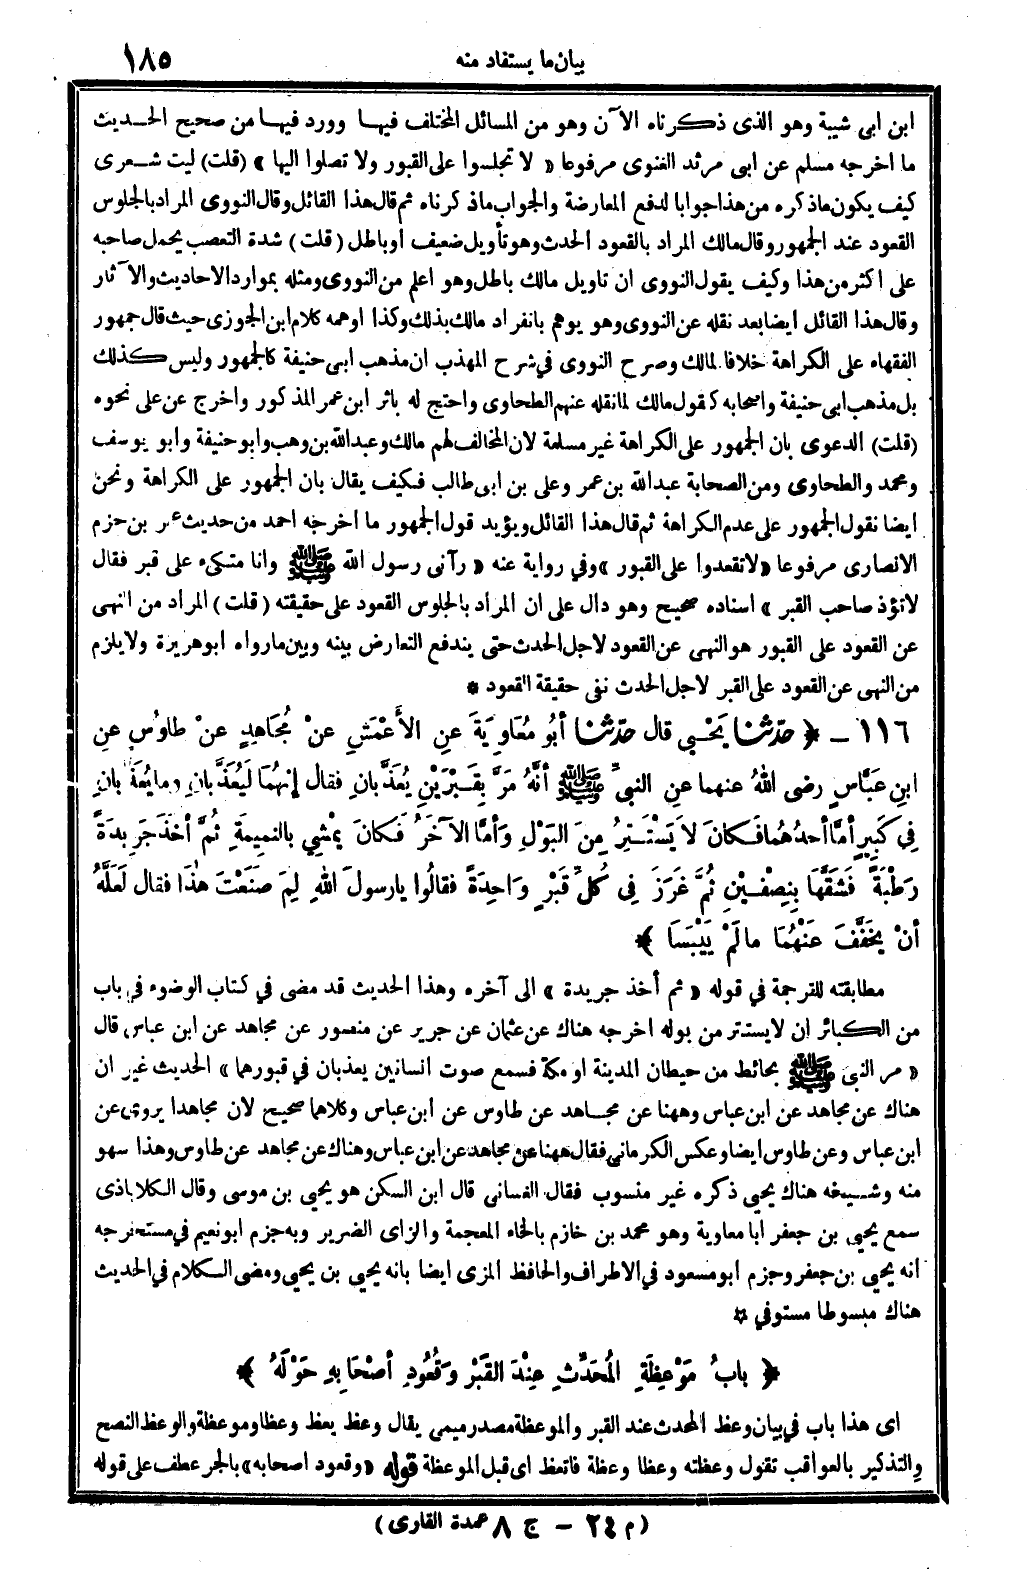 بيان ما يستفاد منه ١٨٥
ابن ابى شيبة وهو الذى ذكرناه الآن وهو من المسائل المختلف فيها وورد فيها من صحيح الحديث
ما اخرجه مسلم عن ابى مرثد الغنوى مرفوعا « لا تجلسوا على القبور ولا تصلوا اليها » (قلت) ليت شعرى
كيف يكون ماذكره من هذا جوابا لدفع المعارضة والجواب ماذكرناه ثم قال هذا القائل وقال النووى المراد بالجلوس
القعود عند الجمهور وقال مالك المراد بالقعود الحدث وهو تأويل ضعيف او باطل (قلت) شدة التعصب يحمل صاحبه
على اكثر من هذا وكيف يقول النووى ان تاويل مالك باطل وهو اعلم من النووى ومثله بموارد الاحاديث والآثار
وقال هذا القائل ايضا بعد نقله عن النووى وهو يوهم بانفراد مالك بذلك وكذا اوهمه كلام ابن الجوزى حيث قال جمهور
الفقهاء على الكراهة خلافا لمالك وصرح النووى في شرح المهذب ان مذهب ابى حنيفة كالجمهور وليس كذلك
بل مذهب ابى حنيفة واصحابه كقول مالك لما نقله عنهم الطحاوى واحتج له باثر ابن عمر المذكور واخرج عن على نحوه
(قلت) الدعوى بان الجمهور على الكراهة غير مسلمة لان المخالف لهم مالك وعبدالله بن وهب وابو حنيفة وابو يوسف
ومحمد والطحاوى ومن الصحابة عبدالله بن عمر وعلى بن ابى طالب فكيف يقال بان الجمهور على الكراهة ونحن
ايضا نقول الجمهور على عدم الكراهة ثم قال هذا القائل ويؤيد قول الجمهور ما اخرجه احمد من حديث عمر بن حزم
الانصارى مرفوعا «لا تقعدوا على القبور » وفي رواية عنه « رآنى رسول الله ﷺ وانا متكىء على قبر فقال
لا تؤذ صاحب القبر » اسناده صحيح وهو دال على ان المراد بالجلوس القعود على حقيقته (قلت) المراد من النهى
عن القعود على القبور هو النهى عن القعود لاجل الحدث حتى يندفع التعارض بينه وبين مارواه ابو هريرة ولا يلزم
من النهى عن القعود على القبر لاجل الحدث نفى حقيقة القعود *
١١٦ - ﴿ حَدَّثَنَا يَحْيَى قال حَدَّثَنَا أبُو مُعَاوِيَةَ عَنِ الأَعْمَشِ عنْ مُجَاهِدٍ عنْ طاوُسٍ عنِ
ابنِ عَبَّاسٍ رضى اللهُ عنهما عنِ النبىِّ ﷺ أنَّهُ مَرَّ بِقَبْرَيْنِ يُعَذَّبانِ فقال إنَّهُمَا لَيُعَذَّبانِ وما يُعَذَّبانِ
فِي كَبِيرٍ أمَّا أحدُهُما فَكانَ لاَ يَسْتَتِرُ مِنَ البَوْلِ وَأمَّا الآخَرُ فَكانَ يَمْشِي بالنَّمِيمَةِ ثُمَّ أخَذَ جَرِيدَةً
رَطْبَةً فَشَقَّهَا بِنِصْفَيْنِ ثُمَّ غَرَزَ فِى كُلِّ قَبْرٍ وَاحِدَةً فقالُوا يا رسولَ اللهِ لِمَ صَنَعْتَ هٰذَا فقال لَعَلَّهُ
أنْ يُخَفَّفَ عَنْهُمَا ما لَمْ يَيْبَسَا ﴾
مطابقته للترجمة في قوله « ثم أخذ جريدة » الى آخره وهذا الحديث قد مضى في كتاب الوضوء في باب
من الكبائر ان لا يستتر من بوله اخرجه هناك عن عثمان عن جرير عن منصور عن مجاهد عن ابن عباس قال
« مر النبى ﷺ بحائط من حيطان المدينة او مكة فسمع صوت انسانين يعذبان في قبورهما » الحديث غير ان
هناك عن مجاهد عن ابن عباس وههنا عن مجاهد عن طاوس عن ابن عباس وكلاهما صحيح لان مجاهدا يروى عن
ابن عباس وعن طاوس ايضا وعكس الكرمانى فقال ههنا عن مجاهد عن ابن عباس وهناك عن مجاهد عن طاوس وهذا سهو
منه وشيخه هناك يحيى ذكره غير منسوب فقال الغسانى قال ابن السكن هو يحيى بن موسى وقال الكلاباذى
سمع يحيى بن جعفر ابا معاوية وهو محمد بن خازم بالخاء المعجمة والزاى الضرير وبه جزم ابو نعيم في مستخرجه
أنه يحيى بن جعفر وجزم ابو مسعود في الاطراف والحافظ المزى ايضا بانه يحيى بن يحيى ومضى الكلام في الحديث
هناك مبسوطا مستوفي *
﴿ بابُ مَوْعِظَةِ المُحَدِّثِ عِنْدَ القَبْرِ وَقُعُودِ أصْحَابِهِ حَوْلَهُ ﴾
اى هذا باب في بيان وعظ المحدث عند القبر والموعظة مصدر ميمى يقال وعظ يعظ وعظا وموعظة والوعظ النصح
والتذكير بالعواقب تقول وعظته وعظا وعظة فاتعظ اى قبل الموعظة قوله «وقعود اصحابه» بالجر عطف على قوله
(م ٢٤ - ج ٨ عمدة القارى)